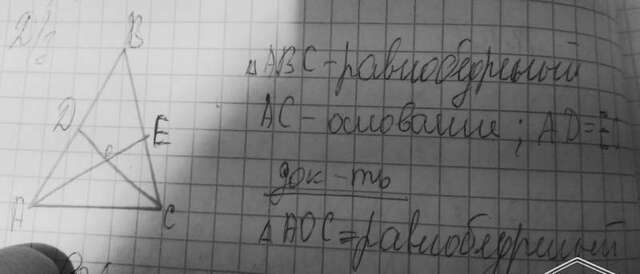 2)
B
D
E
o
A
C
△ABC-равнобедренный
AC-основание; AD=E
док-ть
△AOC=равнобедренный